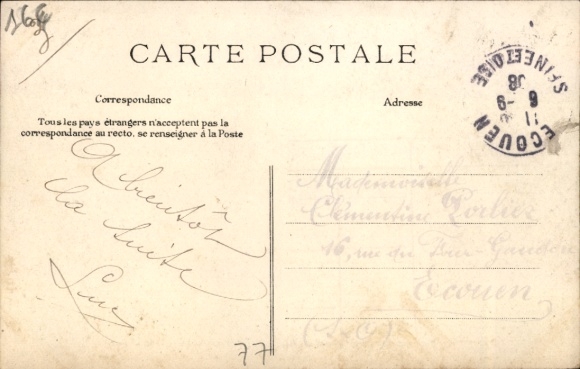 CARTE POSTALE
Correspondance
Adresse
Tous les pays étrangers n'acceptent pas la
correspondance au recto, se renseigner à la Poste
A bientôt
la suite
Mademoiselle
Clémentine
16, rue du Four
Ecouen
(S-O)
77
ECOUEN
SEINE ET OISE